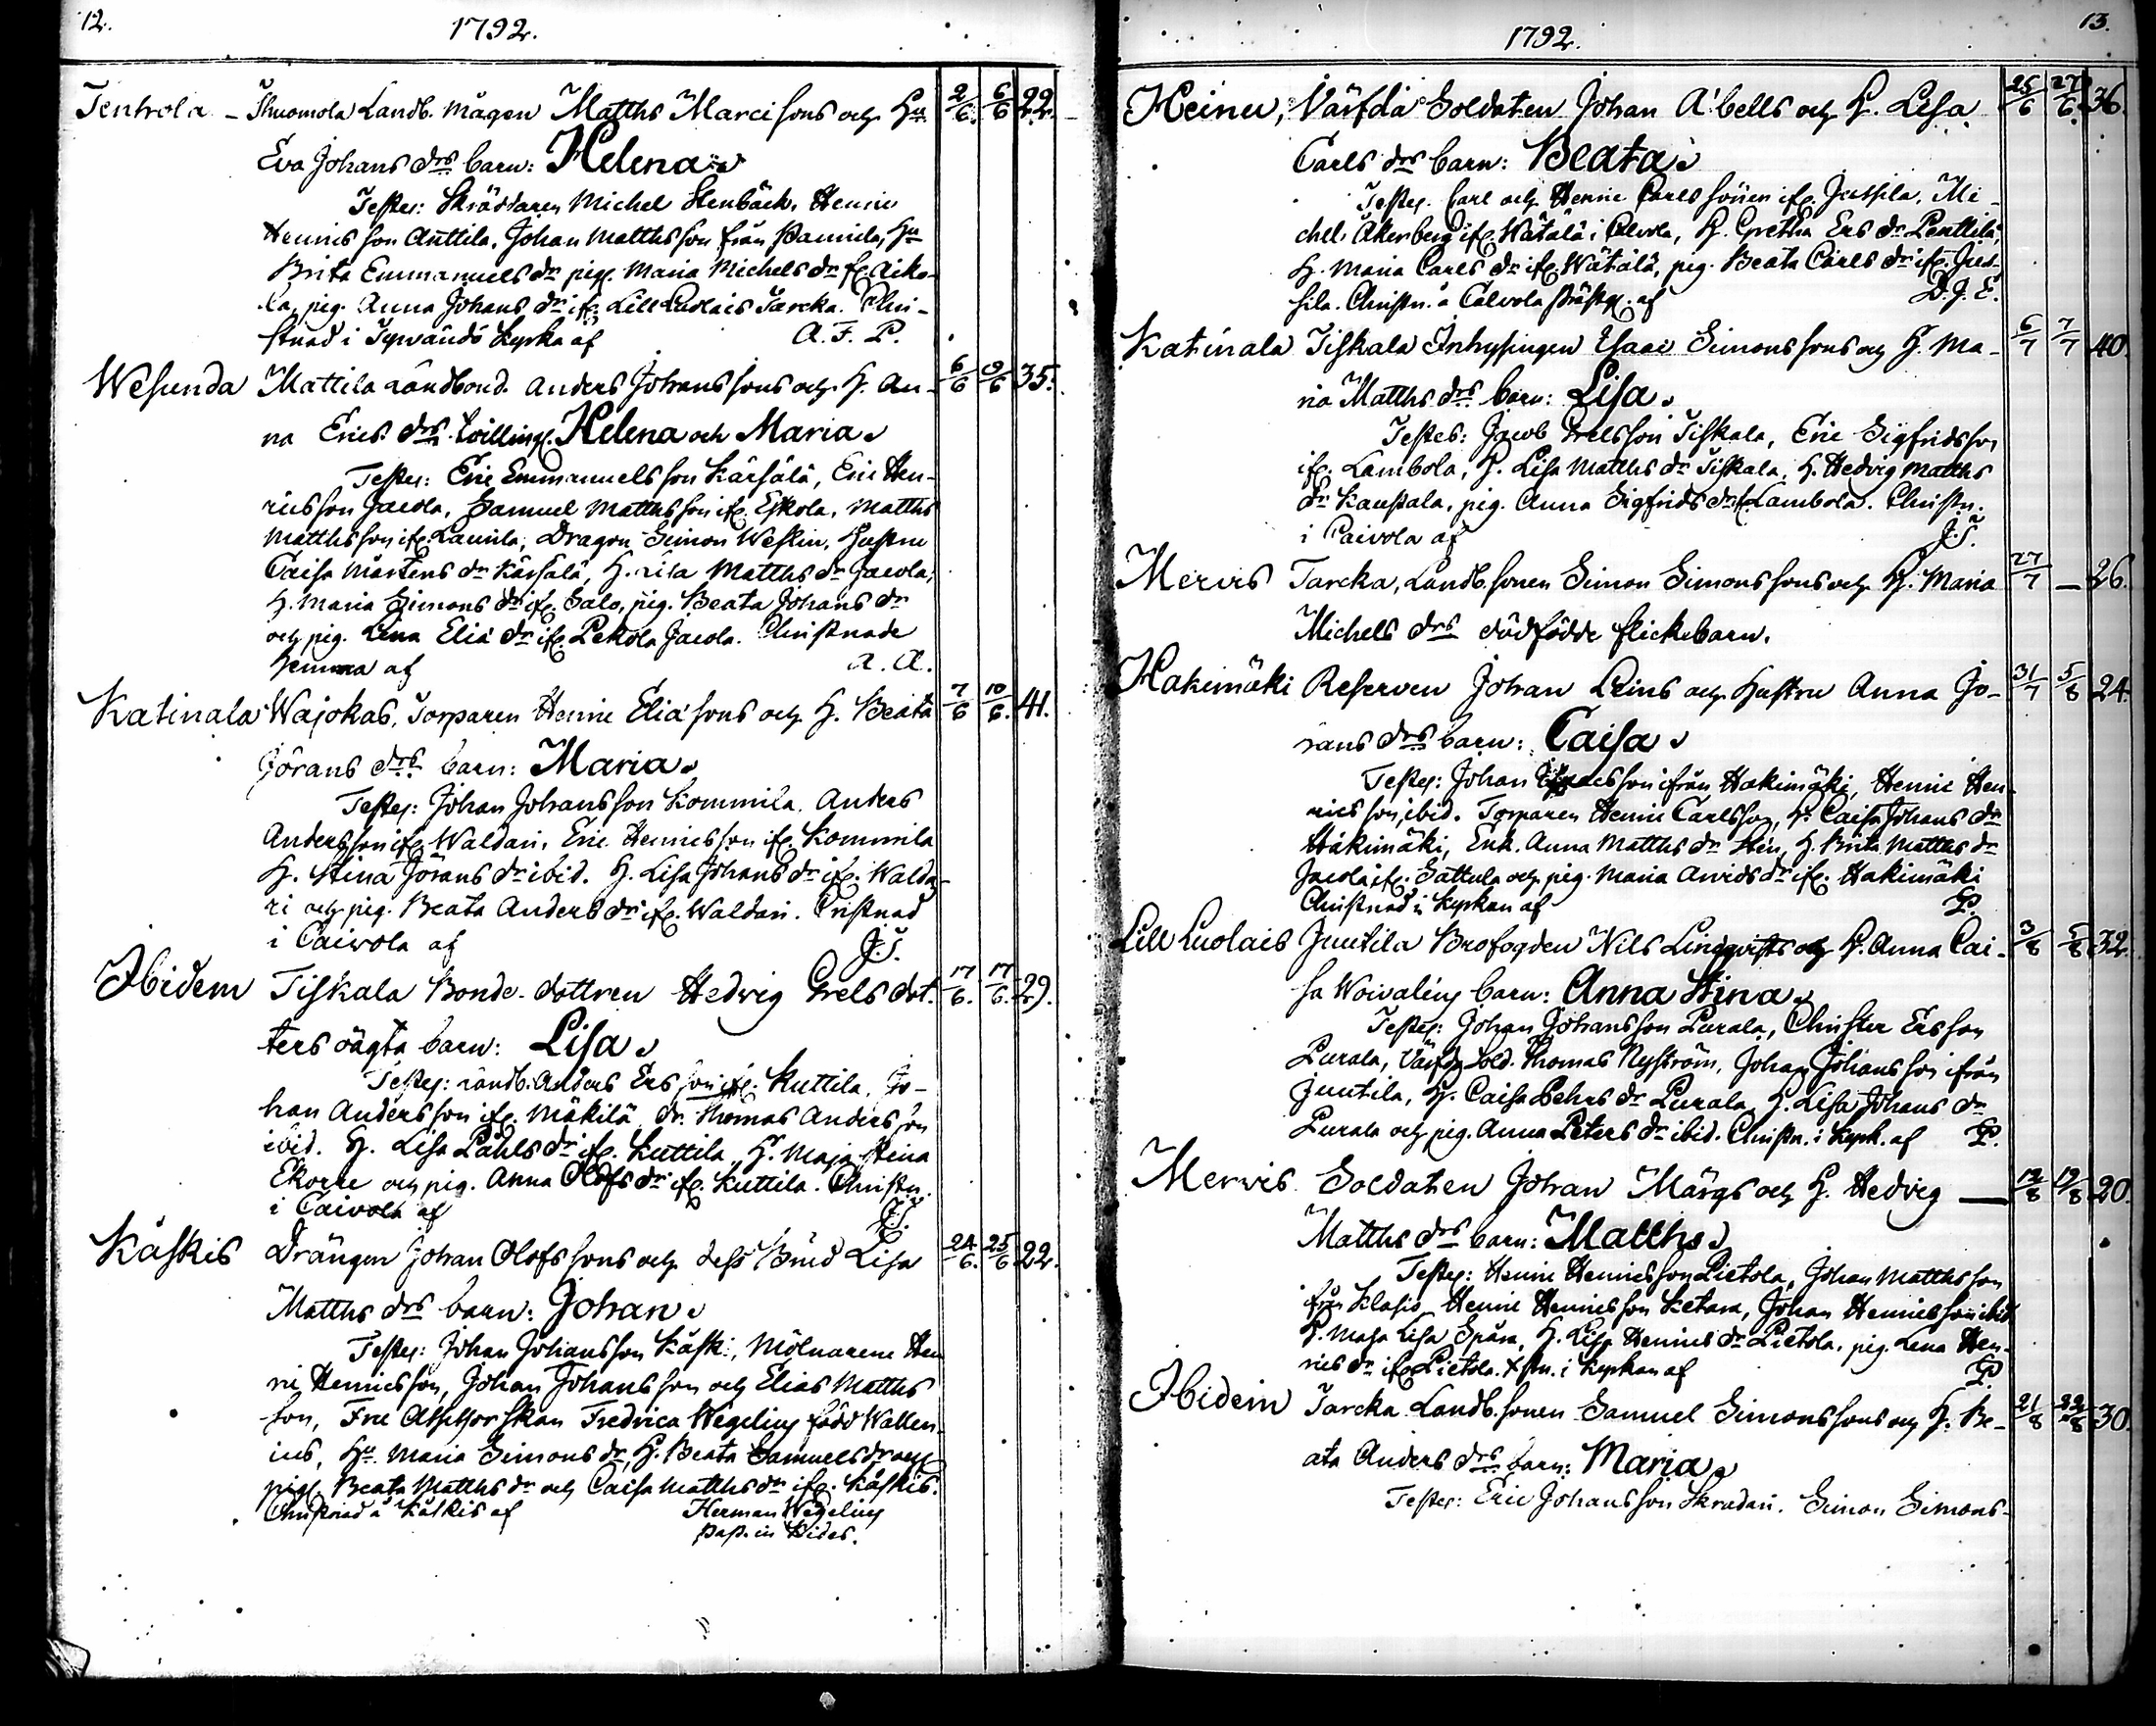 12.
1792.
Tenhola - Thuomola Landb. mågen Matths Marci sons och Hu 2/6. 6/6 22.
Eva Johans drs barn: Helena.
Testes: Skräddaren Michel Stenbäck, Henric
Henrics son Anttila, Johan Matthsson från Pamila, Hu
Brita Emmanuels dr pig. Maria Michels dr fr. Aiko-
la, pig. Anna Johans dr ifr. Lill Luolais Tarcka. Chri-
stnad i Tyrvändö kyrka af A. F. P.
Wesunda Mattila Landbond. Anders Johans sons och H. An- 6/6 9/6 35.
na Erics drs tvilling. Helena och Maria.
Testes: Eric Emmanuelsson Kärsälä, Eric Hen-
ricsson Jacola, Samuel Matthsson ifr. Eskola, Matths
Matthsson ifr. Laurila, Dragon Simon Westin, hustru
Caisa Mårtens dr Kärsälä, H. Lisa Matths dr Jacola,
H. Maria Simons dr ifr. Salo, pig. Beata Johans dr
och pig. Lena Eliæ dr ifr. Pekola Jacola. Christnade
hemma af A. A.
Katinala Wajokas, Torparen Henric Eliæ sons och H. Beata 7/6 10/6. 41.
Görans drs barn: Maria.
Testes: Johan Johansson Kommila, Anders
Andersson ifr. Waldari, Eric Henricsson ifr. Kommila
H. Stina Jörans dr ibid. H. Lisa Johans dr ifr. Walda-
ri och pig. Beata Anders dr ifr. Waldari. Cristnad
i Caivola af J. T.
Ibidem Tiskala Bonde-dottren Hedvig Grels dot- 17/6. 17/6. 29.
ters oägta barn: Lisa.
Testes: Landb. Anders Ersson ifr. Kuttila, Jo-
han Andersson ifr. Mäkilä, dr. Thomas Andersson
ibid. H. Lisa Påhls dr ifr. Kuttila, H. Maja Stina
Ekorre och pig. Anna Olofs dr ifr. Kuttila. Christn.
i Caivola af J. T.
Käskis Drängen Johan Olofs sons och dess Brud Lisa 24/6. 25/6 22.
Matths drs barn: Johan.
Testes: Johan Johansson Käsk:, Mölnarene Hen
ric Henricsson, Johan Johansson och Elias Matths
son, Fru Assessorskan Fredrica Wegelius född Wallen-
ius, Hu. Maria Simons dr, H. Beata Samuels dr och
pig. Beata Matths dr och Caisa Matths dr ifr. Käskis.
Christnad å Käskis af Herman Wegelius
Past. in Kides.
1792.
13.
Heinu, Värfda Soldaten Johan Abells och H. Lisa 25/6 27/6. 36.
Carls drs barn: Beata.
Testes. Carl och Henric Carls söner ifr. Jussila, Mi-
chel Åkerberg ifr. Wätälä i Calvola, H. Gretha Ers dr Penttilä,
H. Maria Carls dr ifr. Wätälä, pig. Beata Carls dr ifr. Jus-
sila. Christn. å Calvola Prästg. af D. J. E.
Katinala Tiskala Inhysingen Isaac Simons sons och H. Ma- 6/7 7/7 40.
ria Matths drs barn: Lisa.
Testes: Jacob Grelsson Tiskala, Eric Sigfridsson
ifr. Lambola, H. Lisa Matths dr Tiskala, H. Hedvig Matths
dr Kaustala, pig. Anna Sigfrids dr fr. Lambola. Christn.
i Caivola af J. T.
Mervis Tarcka, Landb. sonen Simon Simons sons och H. Maria 27/7 — 26.
Michels drs dödfödde flickebarn.
Hakimäki Reserven Johan Leins och hustru Anna Jo- 31/7 5/8 24.
rans drs barn: Caisa.
Testes: Johan son ifrån Hakimäki, Henric Hen-
rics son, ibid. Torparen Henric Carlsson, H. Caisa Johans dr
Hakimäki, Enk. Anna Matths dr Stén, H. Brita Matths dr
Jacola ifr. Sattula och pig. Maria Arvids dr ifr. Hakimäki
Christnad i kyrkan af P.
Lill Luolais Juutila Brofogden Nils Lindqvists och H. Anna Cai- 3/8 5/8 32.
sa Woivalins barn: Anna Stina.
Testes: Johan Johansson Purala, Christer Ersson
Purala, Värfv. Sold. Thomas Nyström, Johan Johansson ifrån
Juutila, H. Caisa Pehrs dr Purala, H. Lisa Johans dr
Purala och pig. Anna Peters dr ibid. Christn. i kyrk. af P.
Mervis Soldaten Johan Märgs och H. Hedvig — 12/8 19/8 20.
Matths drs barn: Matths.
Testes: Henric Henricsson Pietola, Johan Matthsson
från Klasis, Henric Henricsson Ketara, Johan Henricsson ibid
H. Maja Lisa Spåra, H. Lisa Henrics dr Pietola, pig. Lena Hen-
rics dr ifr. Pietola. Xstn. i kyrkan af P
Ibidem Tarcka Landb. sonen Samuel Simons sons och H. Be- 21/8 22/8 30.
ata Anders drs barn: Maria.
Testes: Eric Johansson Skradari, Simon Simons-